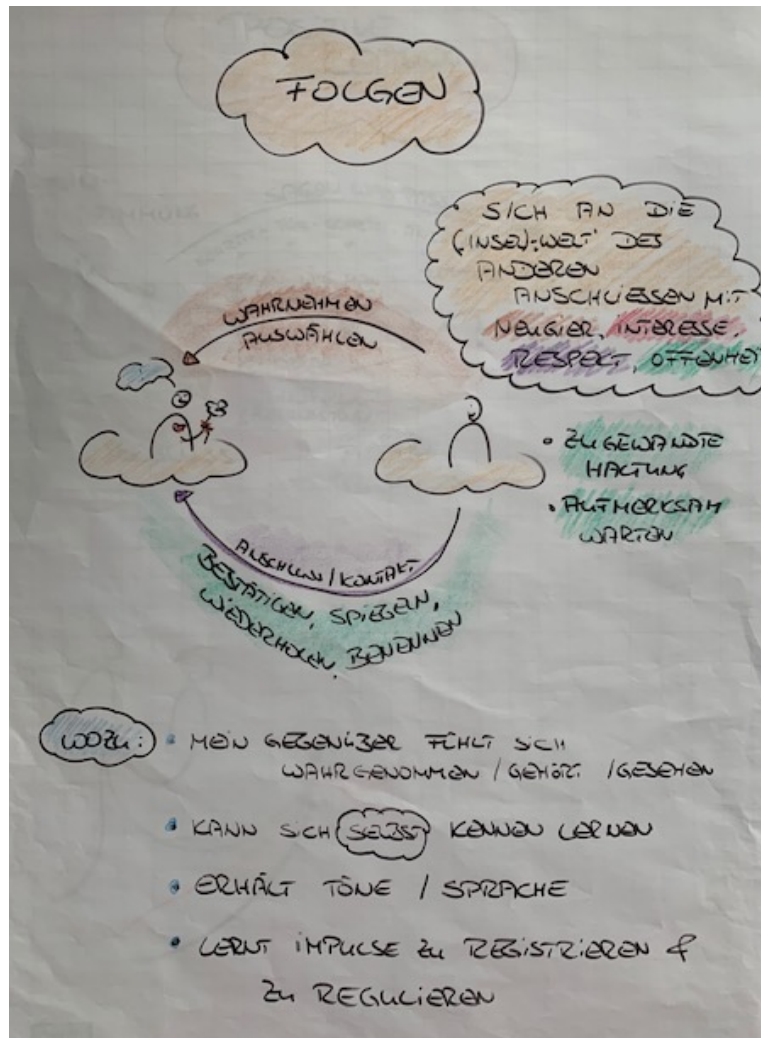 FOLGEN
SICH AN DIE
(INSEL)-WELT DES
ANDEREN
ANSCHLIESSEN MIT
NEUGIER, INTERESSE,
RESPEKT, OFFENHEIT
WAHRNEHMEN
AUSWÄHLEN
• ZUGEWANDTE
HALTUNG
• AUFMERKSAM
WARTEN
ANSCHLUSS / KONTAKT
BESTÄTIGEN, SPIEGELN,
WIEDERHOLEN, BENENNEN
WOZU:
• MEIN GEGENÜBER FÜHLT SICH
WAHRGENOMMEN / GEHÖRT / GESEHEN
• KANN SICH SELBST KENNEN LERNEN
• ERHÄLT TÖNE / SPRACHE
• LERNT IMPULSE ZU REGISTRIEREN &
ZU REGULIEREN